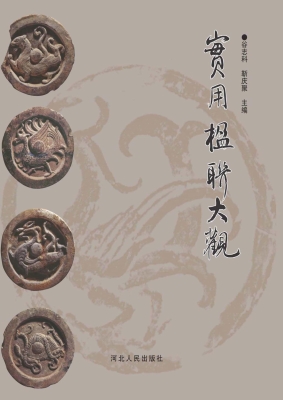 實用楹聯大觀
●谷志科 靳庆聚 主编
河北人民出版社